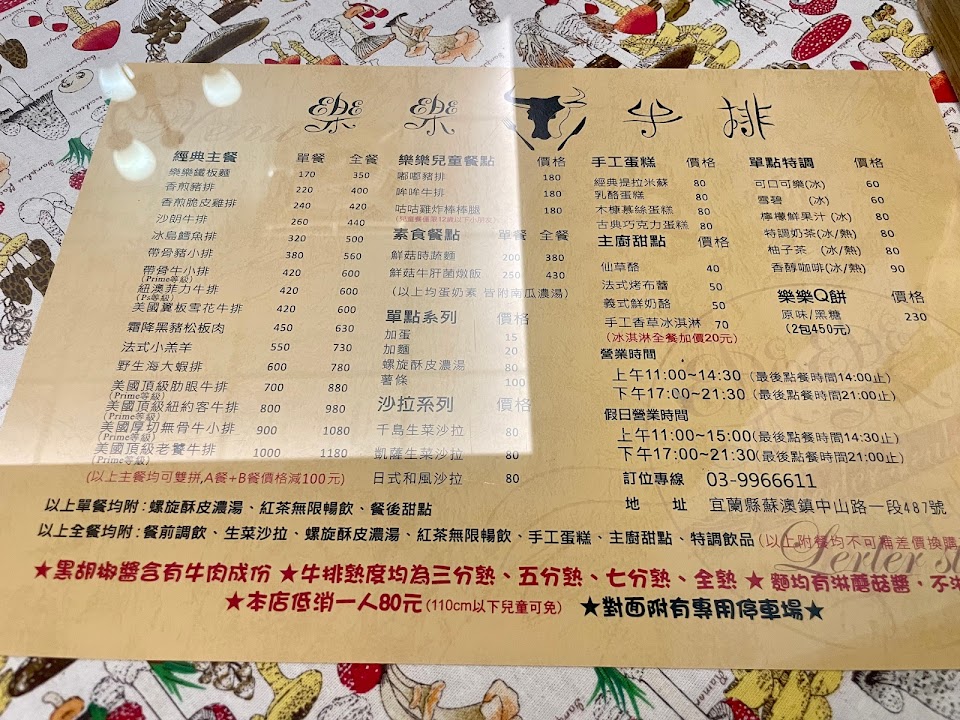 樂 樂 牛 排
經典主餐 單餐 全餐
樂樂鐵板麵 170 350
香煎豬排 220 400
香煎脆皮雞排 240 420
沙朗牛排 260 440
冰島鱈魚排 320 500
帶骨豬小排 380 560
帶骨牛小排 420 600
(Prime等級)
紐澳菲力牛排 420 600
(Ps等級)
美國翼板雪花牛排 420 600
霜降黑豬松板肉 450 630
法式小羔羊 550 730
野生海大蝦排 600 780
美國頂級肋眼牛排 700 880
(Prime等級)
美國頂級紐約客牛排 800 980
(Prime等級)
美國厚切無骨牛小排 900 1080
(Prime等級)
美國頂級老饕牛排 1000 1180
(Prime等級)
(以上主餐均可雙拼,A餐+B餐價格減100元)
樂樂兒童餐點 價格
嘟嘟豬排 180
哞哞牛排 180
咕咕雞炸棒棒腿 180
(兒童餐僅限12歲以下小朋友)
素食餐點 單餐 全餐
鮮菇時蔬麵 200 380
鮮菇牛肝菌燉飯 250 430
(以上均蛋奶素 皆附南瓜濃湯)
單點系列 價格
加蛋 15
加麵 20
螺旋酥皮濃湯 80
薯條 100
沙拉系列 價格
千島生菜沙拉 80
凱薩生菜沙拉 80
日式和風沙拉 80
手工蛋糕 價格
經典提拉米蘇 80
乳酪蛋糕 80
木糠慕絲蛋糕 80
古典巧克力蛋糕 80
主廚甜點 價格
仙草酪 40
法式烤布蕾 50
義式鮮奶酪 50
手工香草冰淇淋 70
(冰淇淋全餐加價20元)
單點特調 價格
可口可樂(冰) 60
雪碧 (冰) 60
檸檬鮮果汁 (冰) 80
特調奶茶(冰/熱) 80
柚子茶 (冰/熱) 80
香醇咖啡(冰/熱) 90
樂樂Q餅 價格
原味/黑糖 230
(2包450元)
營業時間
上午11:00~14:30 (最後點餐時間14:00止)
下午17:00~21:30 (最後點餐時間21:00止)
假日營業時間
上午11:00~15:00(最後點餐時間14:30止)
下午17:00~21:30(最後點餐時間21:00止)
訂位專線 03-9966611
地 址 宜蘭縣蘇澳鎮中山路一段487號
以上單餐均附:螺旋酥皮濃湯、紅茶無限暢飲、餐後甜點
以上全餐均附:餐前調飲、生菜沙拉、螺旋酥皮濃湯、紅茶無限暢飲、手工蛋糕、主廚甜點、特調飲品(以上附餐均不可補差價換購
★黑胡椒醬含有牛肉成份 ★牛排熟度均為三分熟、五分熟、七分熟、全熟 ★ 麵均有淋蘑菇醬,不淋
★本店低消一人80元(110cm以下兒童可免) ★對面附有專用停車場★